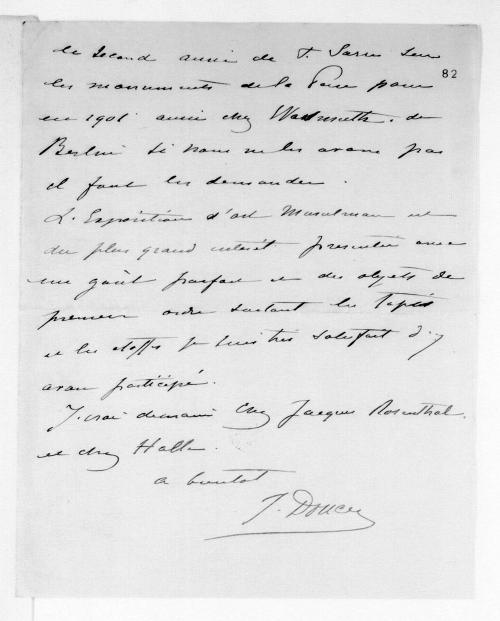 le second aussi de F. Sarre sur
82
les monuments de la Perse paru
en 1901 aussi chez Wasmuth. de
Berlin si nous ne les avons pas
il faut les demander.
L'Exposition d'art Musulman est
du plus grand intérêt présentée avec
un goût parfait et des objets de
premier ordre surtout les Tapis
et les étoffes je suis très satisfait d'y
avoir participé.
J'irai demain chez Jacques Rosenthal.
et chez Halle.
a bientot
J. Doucet